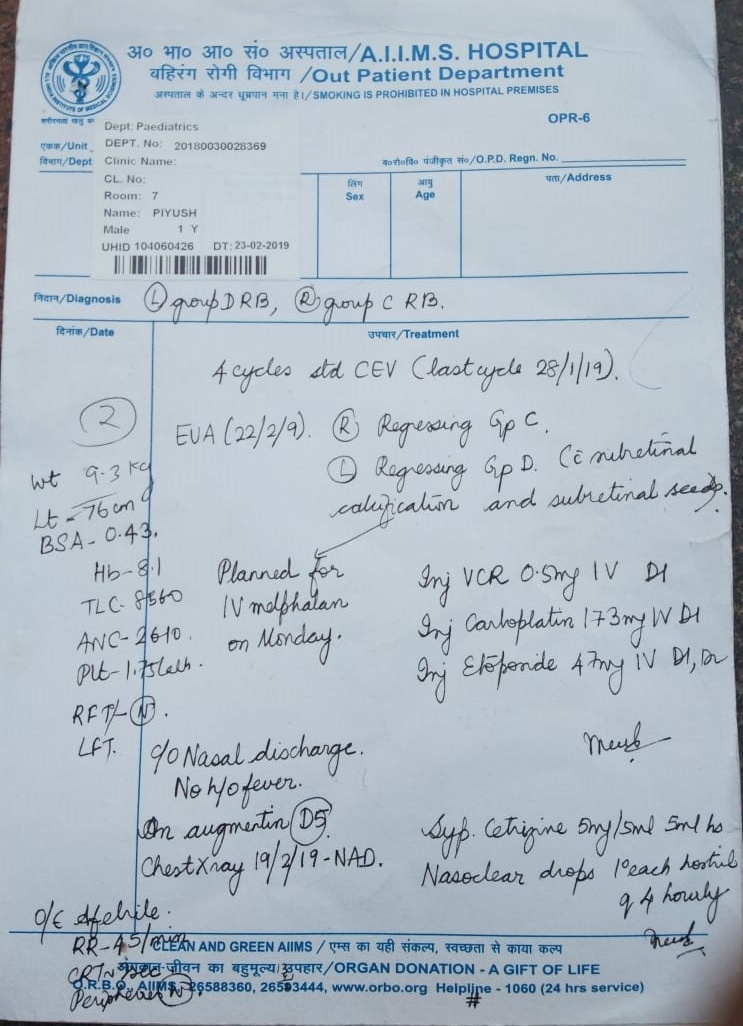 अ० भा० आ० सं० अस्पताल/A.I.I.M.S. HOSPITAL
बहिरंग रोगी विभाग /Out Patient Department
अस्पताल के अन्दर धूम्रपान मना है।/SMOKING IS PROHIBITED IN HOSPITAL PREMISES
OPR-6
एकक/Unit
विभाग/Dept
Dept: Paediatrics
DEPT. No: 20180030028369
Clinic Name:
CL. No:
Room: 7
Name: PIYUSH
Male 1 Y
UHID 104060426 DT: 23-02-2019
ब०रो०वि० पंजीकृत सं०/O.P.D. Regn. No.
लिंग
Sex
आयु
Age
पता/Address
निदान/Diagnosis (L) group D RB, (R) group C RB.
दिनांक/Date उपचार/Treatment
4 cycles std CEV (last cycle 28/1/19).
2
EUA (22/2/9). (R) Regressing Gp C.
(L) Regressing Gp D. (c̄ subretinal
calcification and subretinal seeds.
Wt 9.3 kg
Lt - 76 cm
BSA - 0.43.
Hb - 8.1
TLC - 8560
ANC - 2610.
Plt - 1.75 lakh.
RFT - (N).
LFT.
Planned for
IV melphalan
on Monday.
Inj VCR 0.5mg IV D1
Inj Carboplatin 173mg IV D1
Inj Etoposide 47mg IV D1, D2
c/o Nasal discharge.
No h/o fever.
On augmentin (D5)
Chest Xray 19/2/19 - NAD.
Syp. Cetrizine 5mg/5ml 5ml hs
Nasoclear drops 1° each nostril
q 4 hourly
O/E Afebrile.
RR - 45/min
CLEAN AND GREEN AIIMS / एम्स का यही संकल्प, स्वच्छता से काया कल्प
अंगदान-जीवन का बहुमूल्य उपहार/ORGAN DONATION - A GIFT OF LIFE
O.R.B.O. AIIMS, 26588360, 26593444, www.orbo.org Helpline - 1060 (24 hrs service)
Peripheries (N).
#